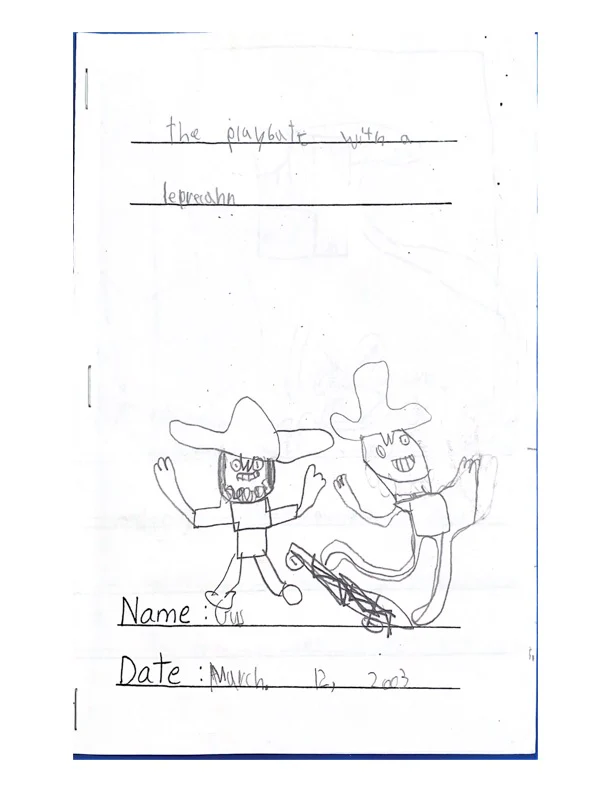 the playdate with a
leprecahn
Name : Gus
Date : March 12, 2003